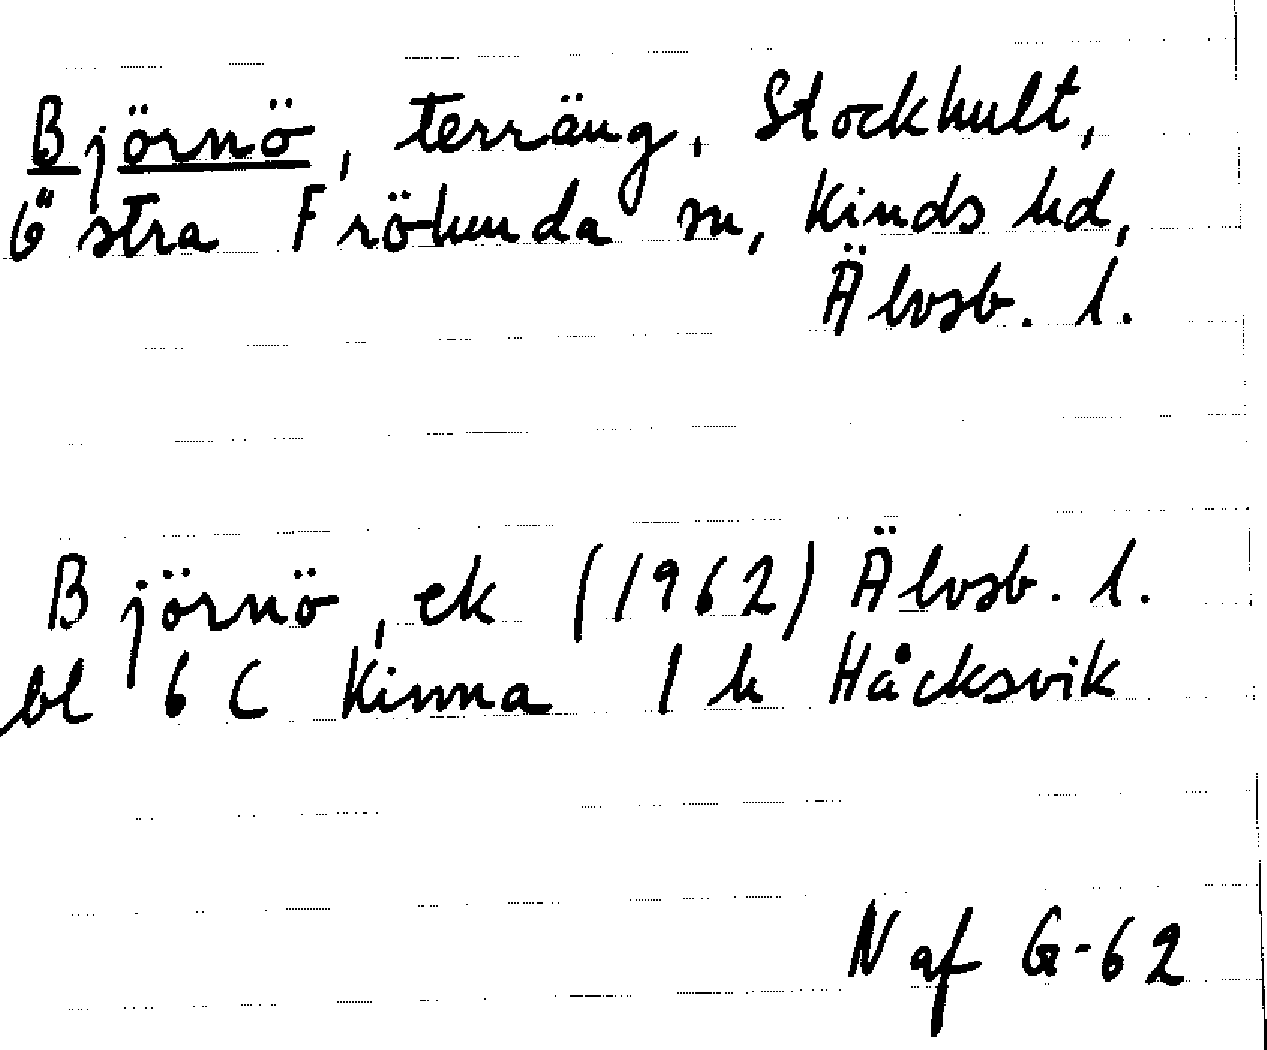 Björnö, terräng, Stockhult,
Östra Frölunda sn, Kinds hd,
Älvsb. l.
Björnö, ek (1962) Älvsb. l.
bl 6 C Kinna 1 h Håcksvik
N af G-62